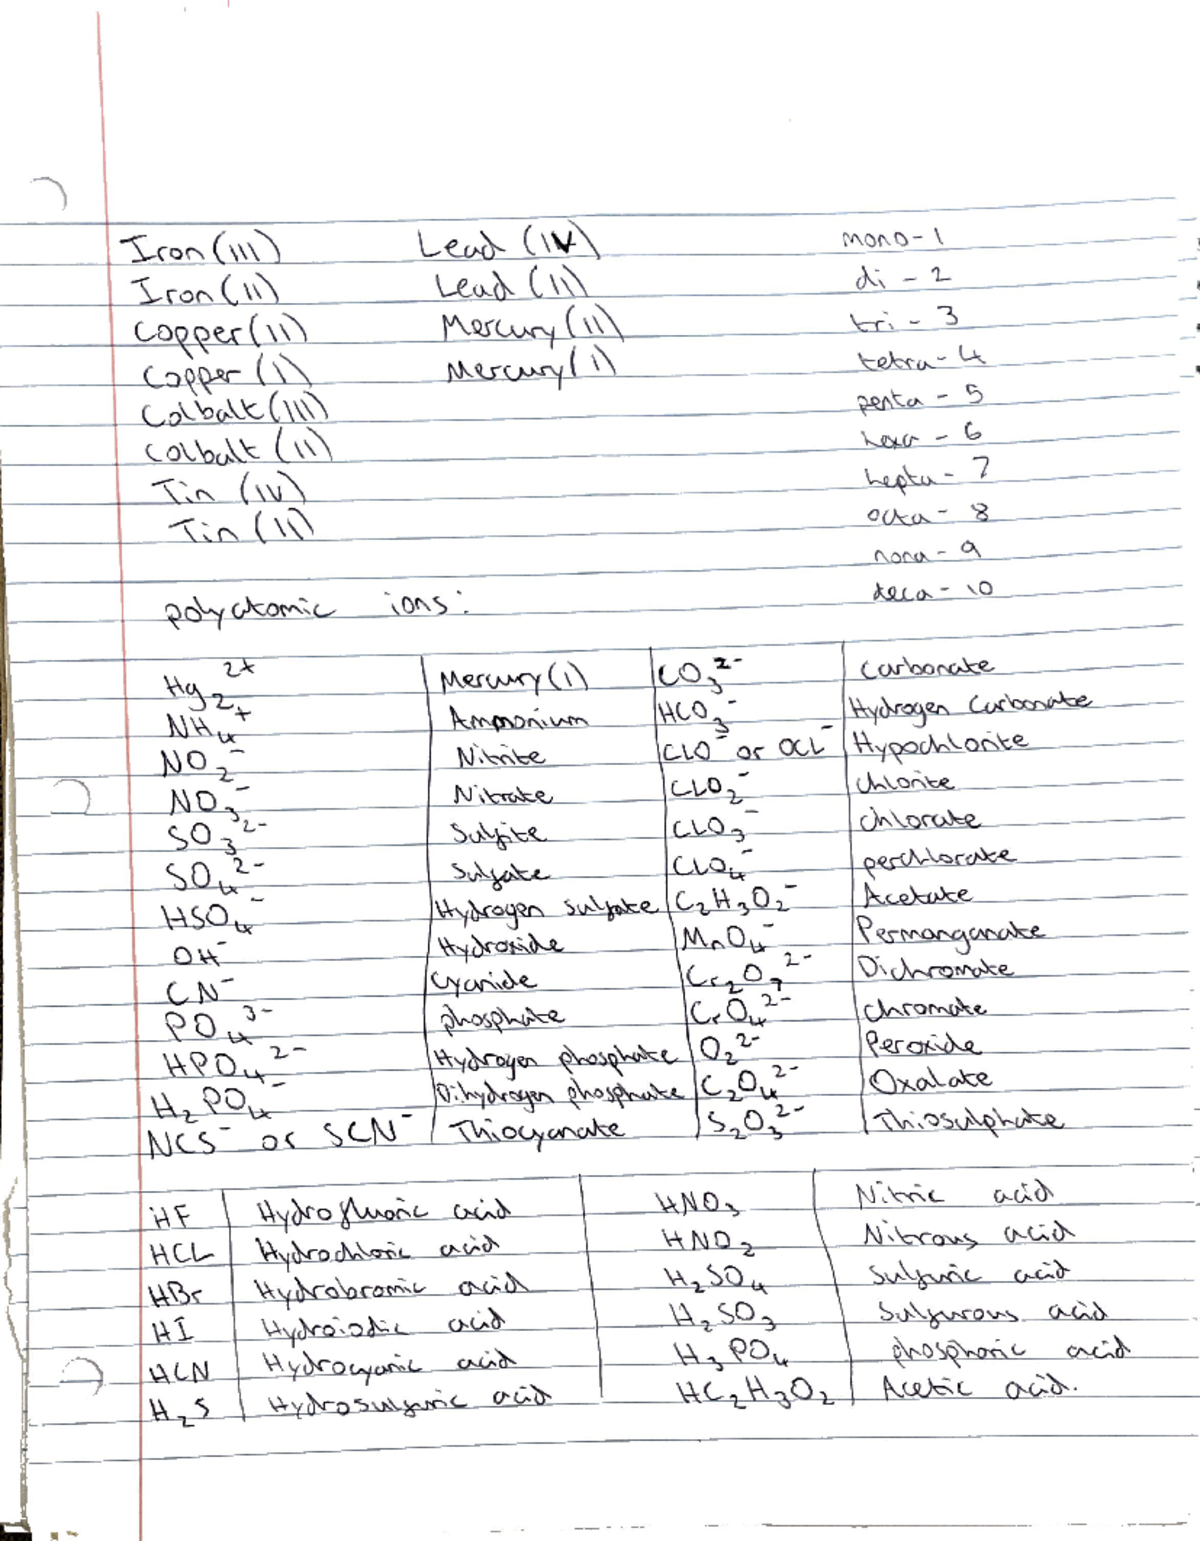 Iron (III) Lead (IV) mono - 1
Iron (II) Lead (II) di - 2
Copper (II) Mercury (II) tri - 3
Copper (I) Mercury (I) tetra - 4
Colbalt (III) penta - 5
Colbalt (II) hexa - 6
Tin (IV) hepta - 7
Tin (II) octa - 8
nona - 9
deca - 10
polyatomic ions:
Hg₂²⁺ Mercury (I) CO₃²⁻ Carbonate
NH₄⁺ Ammonium HCO₃⁻ Hydrogen Carbonate
NO₂⁻ Nitrite CLO⁻ or OCL⁻ Hypochlorite
NO₃⁻ Nitrate CLO₂⁻ chlorite
SO₃²⁻ Sulfite CLO₃⁻ chlorate
SO₄²⁻ Sulfate CLO₄⁻ perchlorate
HSO₄⁻ Hydrogen sulfate C₂H₃O₂⁻ Acetate
OH⁻ Hydroxide MnO₄⁻ Permanganate
CN⁻ Cyanide Cr₂O₇²⁻ Dichromate
PO₄³⁻ phosphate CrO₄²⁻ chromate
HPO₄²⁻ Hydrogen phosphate O₂²⁻ Peroxide
H₂PO₄⁻ Dihydrogen phosphate C₂O₄²⁻ Oxalate
NCS⁻ or SCN⁻ Thiocyanate S₂O₃²⁻ Thiosulphate
HF Hydrofluoric acid HNO₃ Nitric acid
HCL Hydrochloric acid HNO₂ Nitrous acid
HBr Hydrobromic acid H₂SO₄ Sulfuric acid
HI Hydroiodic acid H₂SO₃ Sulfurous acid
HCN Hydrocyanic acid H₃PO₄ phosphoric acid
H₂S Hydrosulfuric acid HC₂H₃O₂ Acetic acid.